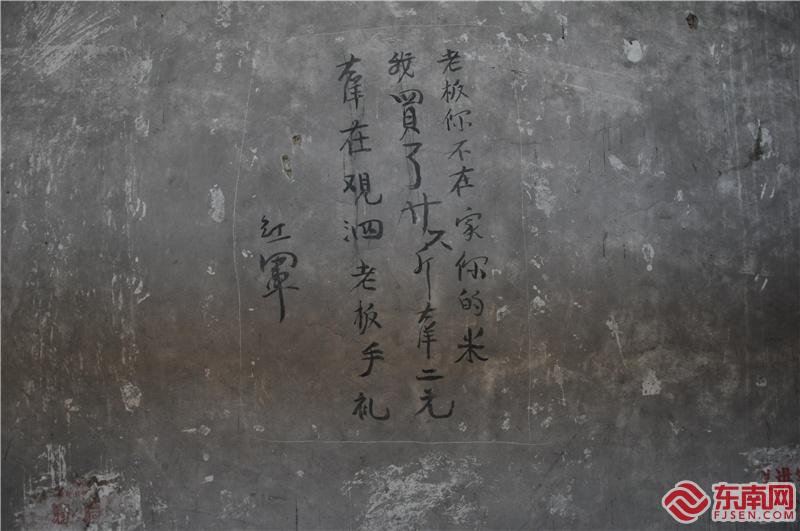 老板你不在家你的米
我買了廿六斤大洋二元
大洋在观泗老板手礼
红軍
东南网
FJSEN.COM